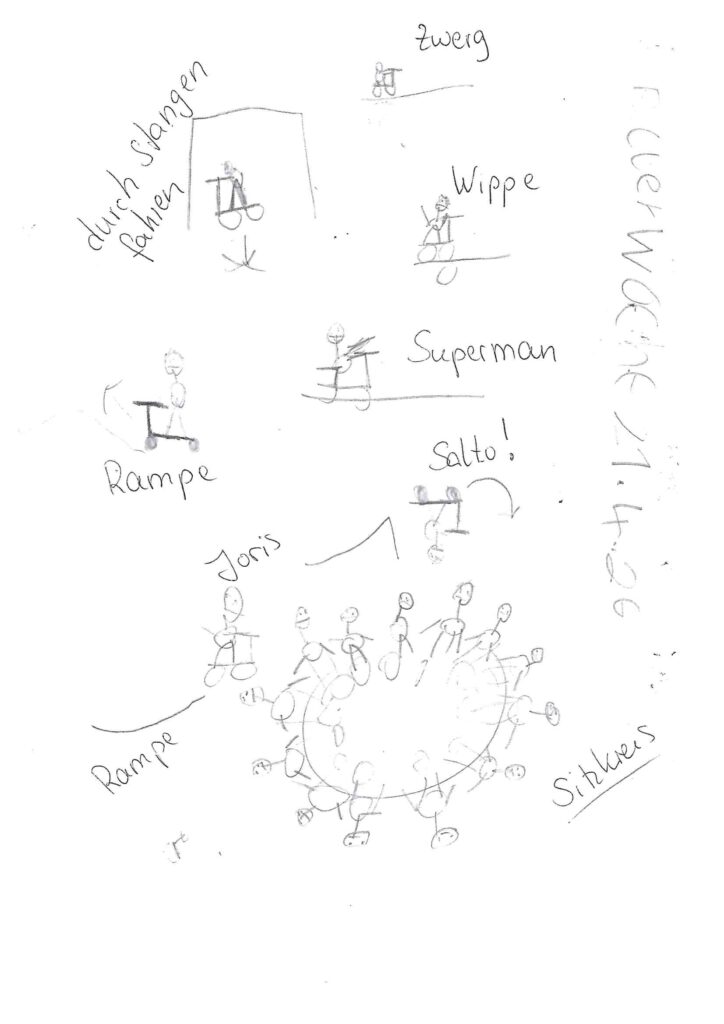 Zwerg
durch Stangen
fahren
Wippe
Superman
Rampe
Salto!
Joris
Rampe
Sitzkreis
21.4.26